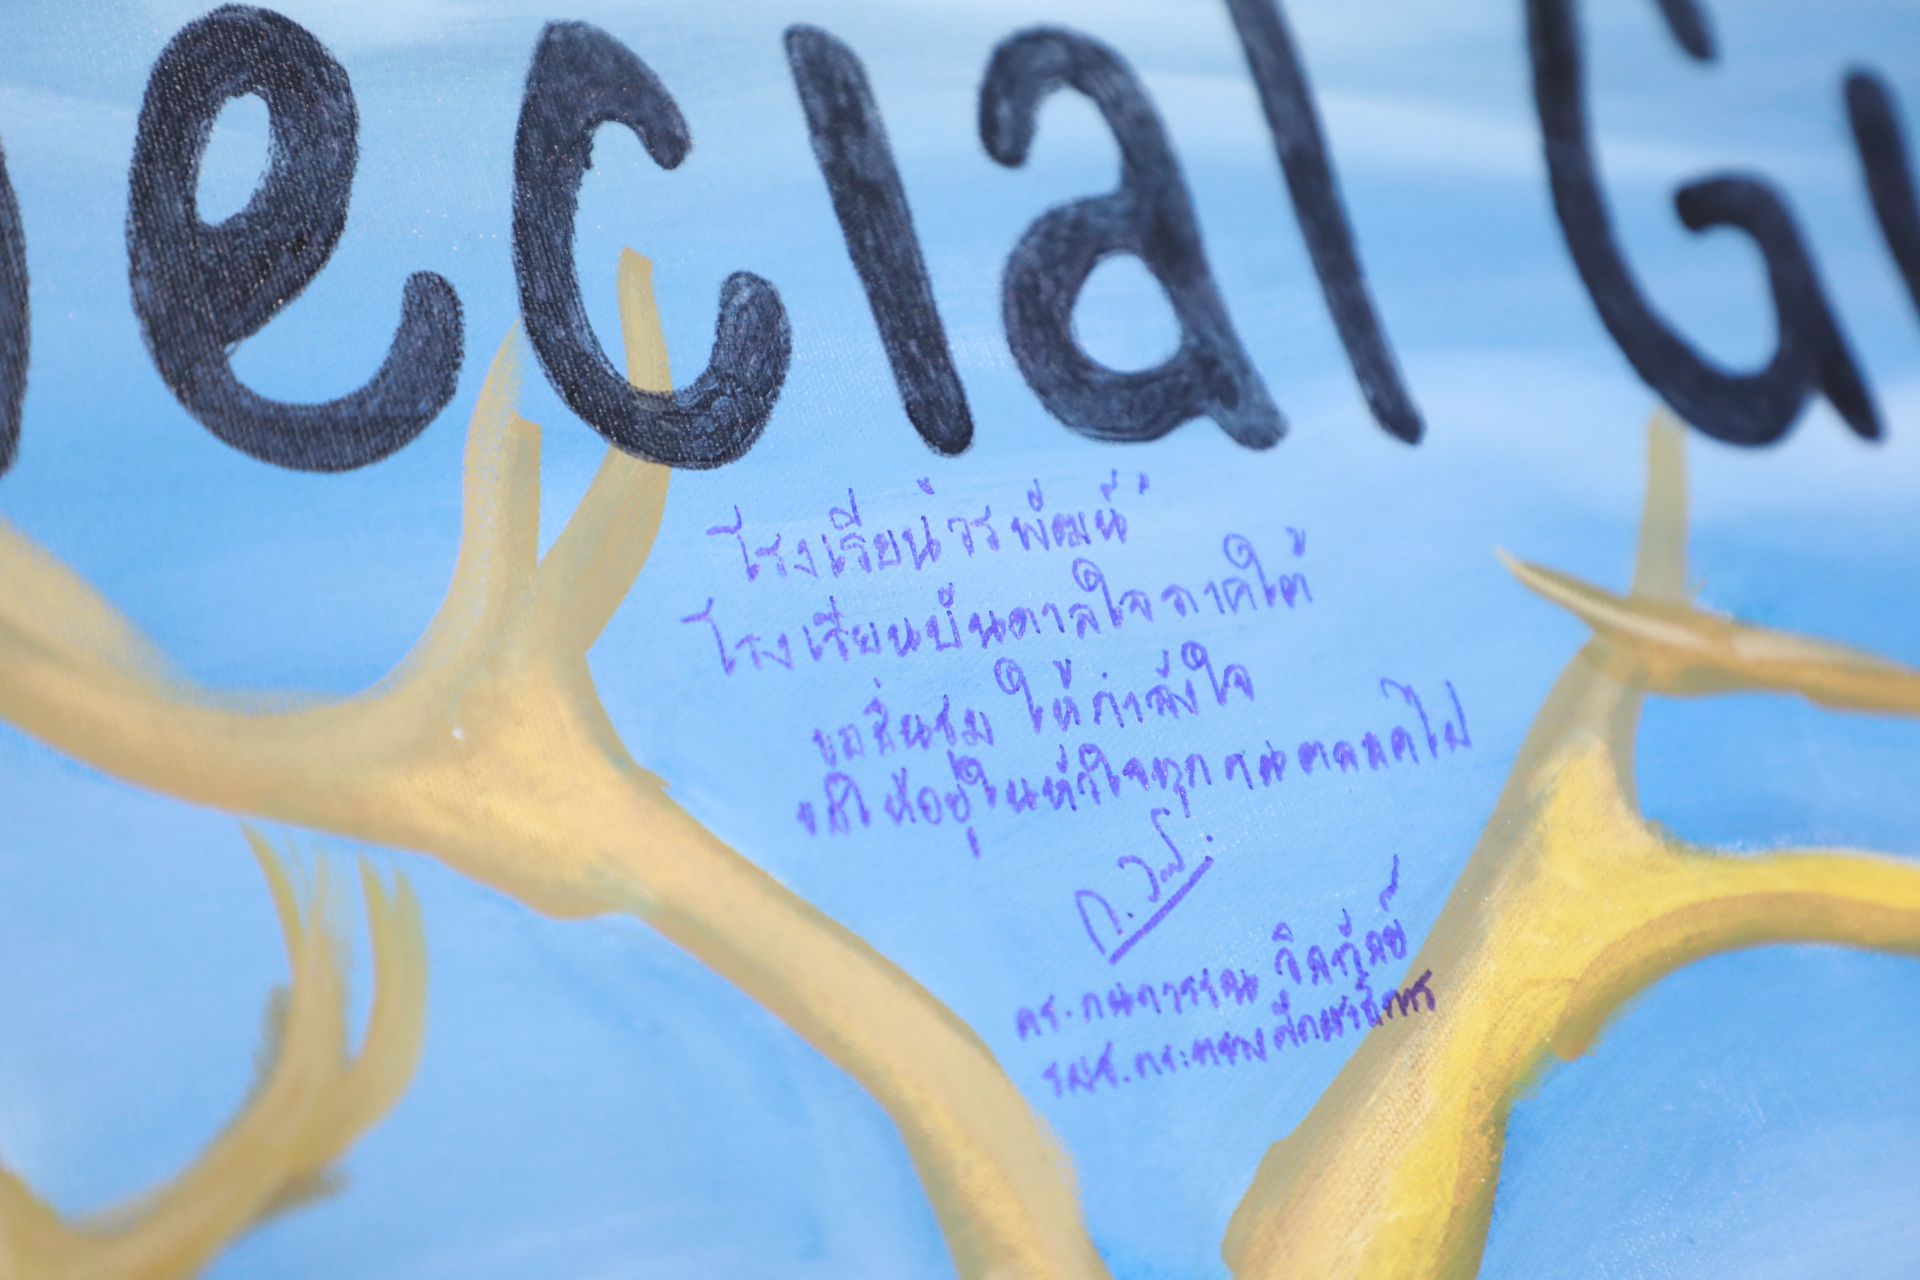 ecial Gu
โรงเรียนวรพัฒน์
โรงเรียนบันดาลใจภาคใต้
ขอชื่นชม ให้กำลังใจ
ให้อยู่ในหัวใจทุกคนตลอดไป
ดร.กนกวรรณ วิลาวัลย์
รมช.กระทรวงศึกษาธิการ